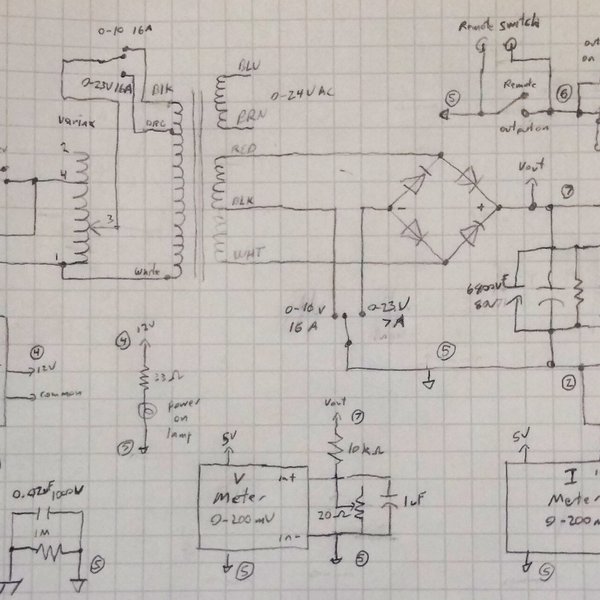 Remote switch
0-10 16A
BLU
0-23V 16A
BLK
0-24VAC
5
Remote
6
output on
variax
ORG
BRN
2
RED
Vout
4
7
3
BLK
-
+
1
white
WHT
80V
0-16V
16A
0-23V
7A
12V
4
5
4
12V
33Ω
2
common
power
on
lamp
5
Vout
7
10kΩ
5V
5V
V
Meter
0-200mV
in+
in-
20Ω
1uF
I
Meter
1000V
1M
5
5
5
5